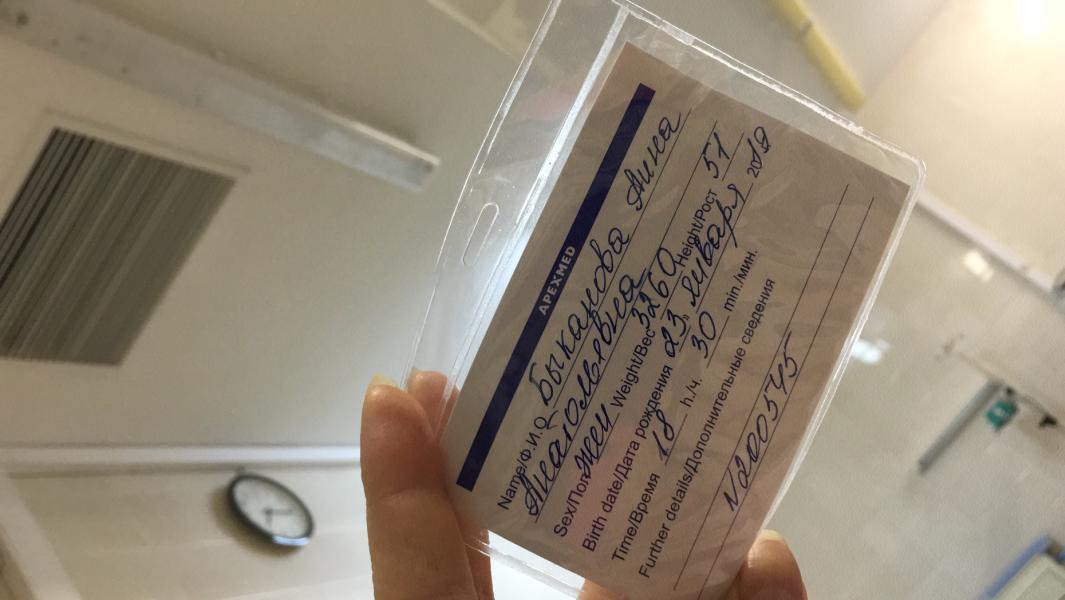 APEXMED
Name/Ф.И.О Быканова Анна
Анатольевна
Sex/Пол жен Weight/Вес 3260 Height/Рост 51
Birth date/Дата рождения 23 января 2019
Time/Время 18 h./ч. 30 min./мин.
Further details/Дополнительные сведения
N200545